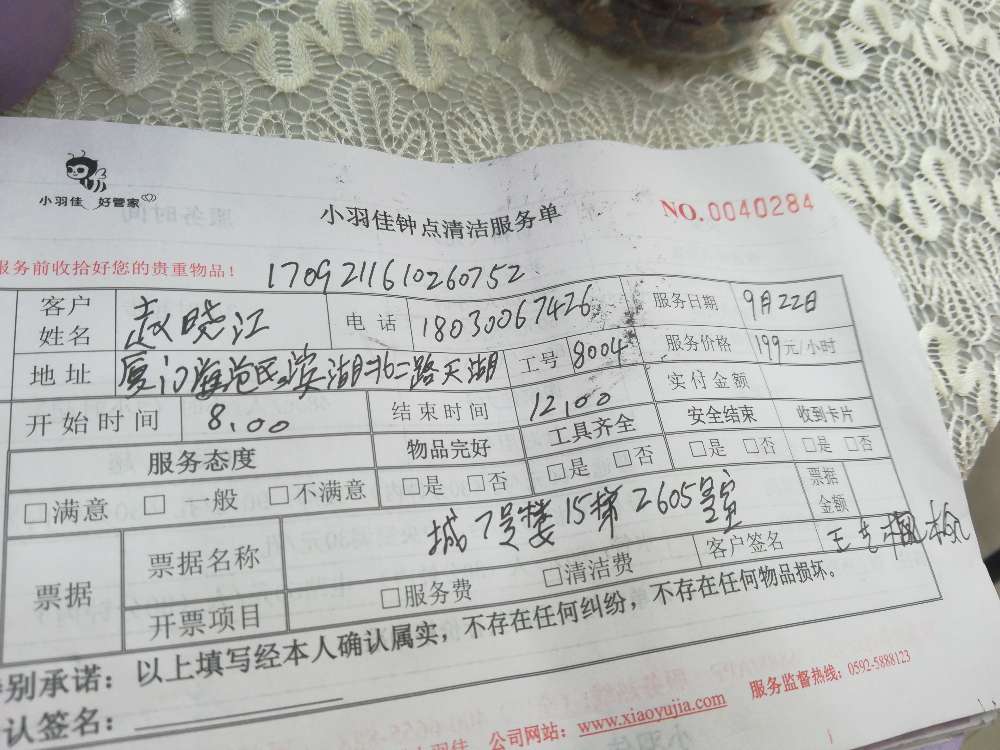 小羽佳 好管家
小羽佳钟点清洁服务单
NO.0040284
服务前收拾好您的贵重物品!
1709211610260752
客户姓名 赵晓江 电话 18030067426 服务日期 9月22日
地址 厦门海沧区滨湖北二路天湖 工号 8004 服务价格 199元/小时
开始时间 8.00 结束时间 12.00 实付金额
服务态度 物品完好 工具齐全 安全结束 收到卡片
□满意 □一般 □不满意 □是 □否 □是 □否 □是 □否 □是 □否
票据 票据名称 城7号楼15梯2605号室 票据金额
开票项目 □服务费 □清洁费 客户签名 王志枫
别承诺：以上填写经本人确认属实，不存在任何纠纷，不存在任何物品损坏。
认签名：
小羽佳 公司网站：www.xiaoyujia.com 服务监督热线：0592-5888123